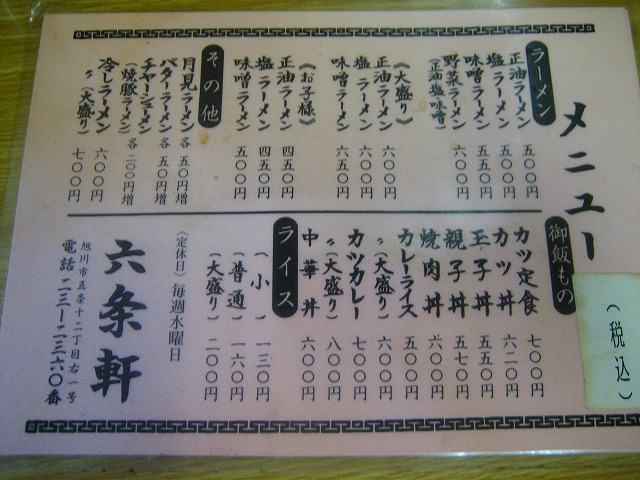 メニュー
(税込)
ラーメン
正油ラーメン 五〇〇円
塩ラーメン 五〇〇円
味噌ラーメン 五五〇円
野菜ラーメン 六〇〇円
(正油・塩・味噌)
《大盛り》
正油ラーメン 六〇〇円
塩ラーメン 六〇〇円
味噌ラーメン 六五〇円
《お子様》
正油ラーメン 四五〇円
塩ラーメン 四五〇円
味噌ラーメン 五〇〇円
その他
月見ラーメン 各 五〇円増
バターラーメン 各 五〇円増
チャーシューメン 各二〇〇円増
(焼豚ラーメン)
冷しラーメン 六〇〇円
〃(大盛り) 七〇〇円
御飯もの
カツ定食 七〇〇円
カツ丼 六二〇円
玉子丼 五五〇円
親子丼 五七〇円
焼肉丼 六〇〇円
カレーライス 五〇〇円
〃(大盛り) 六〇〇円
カツカレー 七〇〇円
〃(大盛り) 八〇〇円
中華丼 六〇〇円
ライス
(小) 一三〇円
(普通) 一六〇円
(大盛り) 二〇〇円
(定休日)毎週水曜日
六条軒
旭川市五条十二丁目右一号
電話 二三―二三六〇番